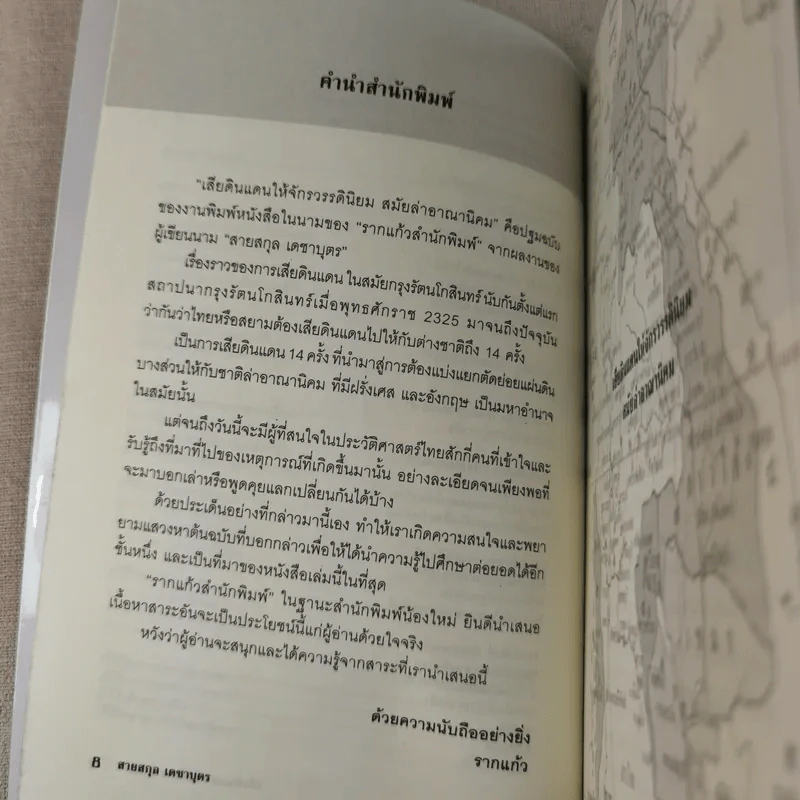 คำนำสำนักพิมพ์
"เสียดินแดนให้จักรวรรดินิยม สมัยล่าอาณานิคม" คือปฐมฉบับ
ของงานพิมพ์หนังสือในนามของ "รากแก้วสำนักพิมพ์" จากผลงานของ
ผู้เขียนนาม "สายสกุล เดชาบุตร"
เรื่องราวของการเสียดินแดน ในสมัยกรุงรัตนโกสินทร์ นับกันตั้งแต่แรก
สถาปนากรุงรัตนโกสินทร์เมื่อพุทธศักราช 2325 มาจนถึงปัจจุบัน
ว่ากันว่าไทยหรือสยามต้องเสียดินแดนไปให้กับต่างชาติถึง 14 ครั้ง
เป็นการเสียดินแดน 14 ครั้ง ที่นำมาสู่การต้องแบ่งแยกตัดย่อยแผ่นดิน
บางส่วนให้กับชาติล่าอาณานิคม ที่มีฝรั่งเศส และอังกฤษ เป็นมหาอำนาจ
ในสมัยนั้น
แต่จนถึงวันนี้จะมีผู้ที่สนใจในประวัติศาสตร์ไทยสักกี่คนที่เข้าใจและ
รับรู้ถึงที่มาที่ไปของเหตุการณ์ที่เกิดขึ้นมานั้น อย่างละเอียดจนเพียงพอที่
จะมาบอกเล่าหรือพูดคุยแลกเปลี่ยนกันได้บ้าง
ด้วยประเด็นอย่างที่กล่าวมานี้เอง ทำให้เราเกิดความสนใจและพยา
ยามแสวงหาต้นฉบับที่บอกกล่าวเพื่อให้ได้นำความรู้ไปศึกษาต่อยอดได้อีก
ชั้นหนึ่ง และเป็นที่มาของหนังสือเล่มนี้ในที่สุด
"รากแก้วสำนักพิมพ์" ในฐานะสำนักพิมพ์น้องใหม่ ยินดีนำเสนอ
เนื้อหาสาระอันจะเป็นประโยชน์นี้แก่ผู้อ่านด้วยใจจริง
หวังว่าผู้อ่านจะสนุกและได้ความรู้จากสาระที่เรานำเสนอนี้
ด้วยความนับถืออย่างยิ่ง
รากแก้ว
8 สายสกุล เดชาบุตร
เสียดินแดนให้จักรวรรดินิยม
สมัยล่าอาณานิคม